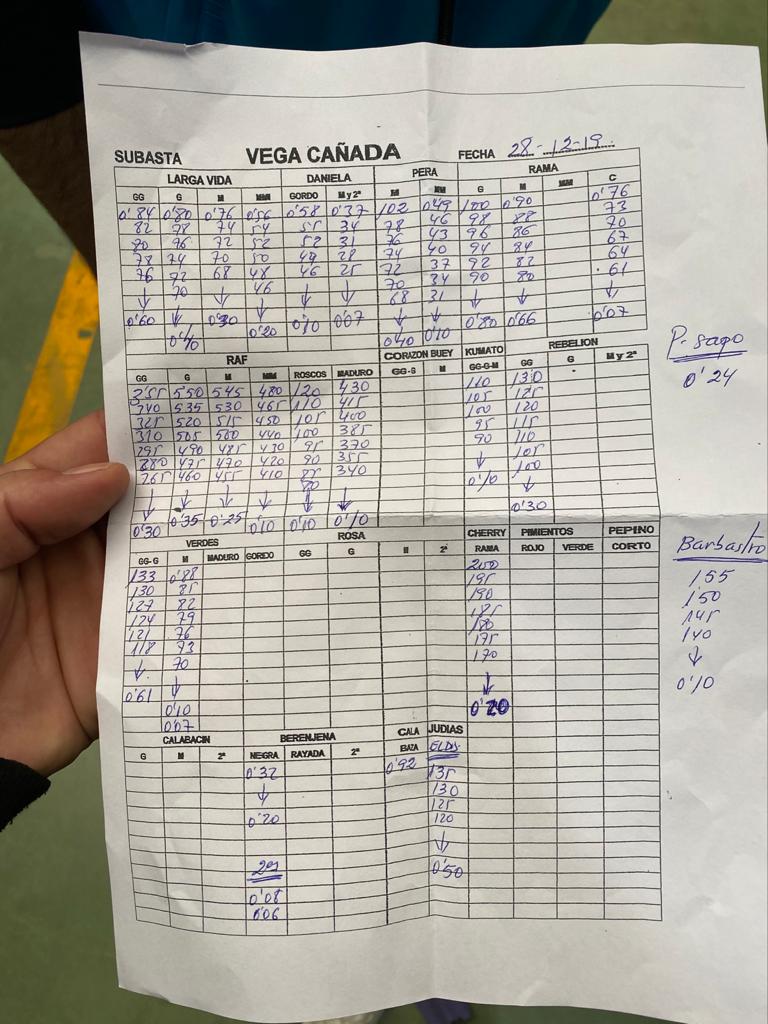 SUBASTA VEGA CAÑADA FECHA 28-12-19
LARGA VIDA DANIELA PERA RAMA
GG G M MM GORDO M y 2ª M MM G M MM C
0'84 0'80 0'76 0'56 0'58 0'37 102 0'49 100 0'90 0'76
82 78 74 54 55 34 78 46 98 88 73
80 76 72 52 52 31 76 43 96 86 70
78 74 70 50 49 28 74 40 94 84 67
76 72 68 48 46 25 72 37 92 82 64
↓ 70 ↓ 46 ↓ ↓ 70 34 90 80 61
↓ ↓ 68 31 ↓ ↓ ↓
0'60 0'40 0'30 0'20 0'10 0'07 0'40 0'10 0'80 0'66 0'07
RAF CORAZON BUEY KUMATO REBELION
GG G M MM ROSCOS MADURO GG-G M GG-G-M GG G M y 2ª
355 550 545 480 120 430 110 130
340 535 530 465 110 415 105 125
325 520 515 450 105 400 100 120
310 505 500 440 100 385 95 115
295 490 485 430 95 370 90 110
280 475 470 420 90 355 ↓ 105
265 460 455 410 85 340 0'10 100
80 ↓
↓ ↓ ↓ ↓ ↓ ↓ 0'30
0'30 0'35 0'25 0'10 0'10 0'10
P. sapo
0'24
VERDES ROSA CHERRY PIMIENTOS PEPINO
GG-G M MADURO GORDO GG G M 2ª RAMA ROJO VERDE CORTO
133 0'88 200
130 85 195
127 82 190
124 79 185
121 76 180
118 73 175
↓ 70 170
0'61 ↓ ↓
0'10 0'20
0'07
Barbastro
155
150
145
140
↓
0'10
CALABACIN BERENJENA CALA JUDIAS
G M 2ª NEGRA RAYADA 2ª BAZA ELDA
0'32 0'92 135
↓ 130
125
0'20 120
↓
2ª 0'50
0'08
0'06